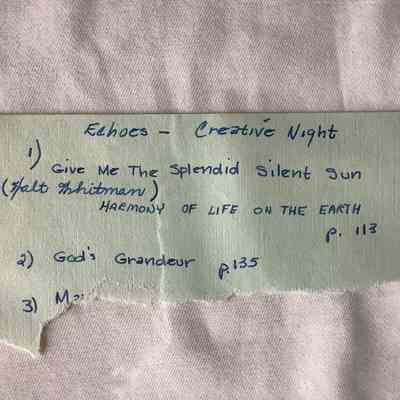 Echoes - Creative Night
1) Give Me The Splendid Silent Sun
(Walt Whitman)
HARMONY OF LIFE ON THE EARTH
p. 113
2) God's Grandeur p.135
3)